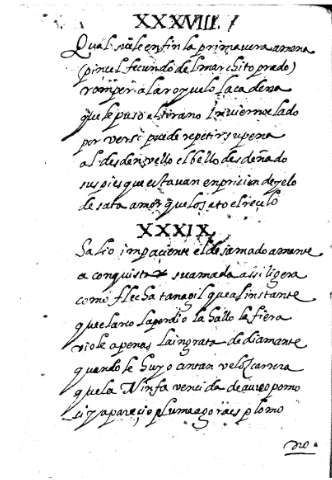 XXXVIII.
Qual suele en fin la primavera amena
(pincel fecundo del marchito prado)
romper al arroyuelo la cadena
que le puso el tirano Invierno elado
por ver si puede repetir su pena
al desden vello el bello desdeñado
sus pies que estavan en prision de yelo
desata amor que los ato el
XXXIX.
Salio impaciente el desamado amante
a conquistar su amada assi ligera
como flecha tan agil que al instante
que el arco la perdio la hallo la fiera
viole apenas la ingrata de diamante
quando le huyo con tan veloz carrera
que la Ninfa vencida de aureo pomo
si y aparecio pluma agora es plomo